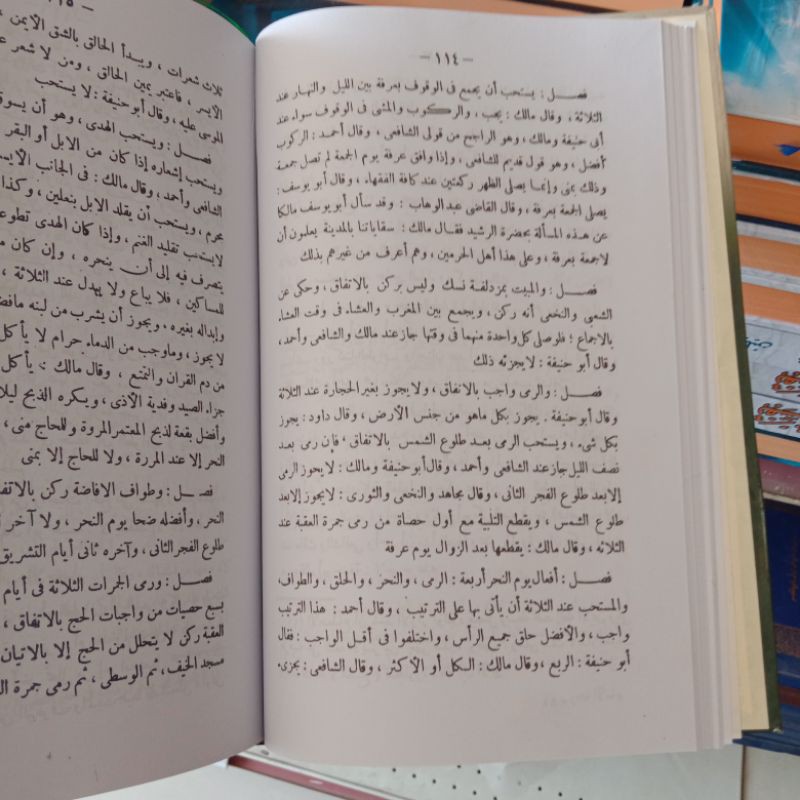 — ١١٤ —
فصـل : يستحب أن يجمع فى الوقوف بعرفة بين الليل والنهار عند
الثلاثة ، وقال مالك : يجب ، والركوب والمشى فى الوقوف سواء عند
أبى حنيفة ومالك ، وهو الراجح من قولى الشافعى ، وقال أحمد : الركوب
أفضل ، وهو قول قديم للشافعى ، وإذا وافق عرفة يوم الجمعة لم تصل جمعة
وذلك بمنى وإنما يصلى الظهر ركعتين عند كافة الفقهاء . وقال أبو يوسف :
يصلى الجمعة بعرفة ، وقال القاضى عبد الوهاب : وقد سأل أبو يوسف مالكا
عن هذه المسألة بحضرة الرشيد فقال مالك : سقاياتنا بالمدينة يعلمون أن
لاجمعة بعرفة ، وعلى هذا أهل الحرمين ، وهم أعرف من غيرهم بذلك
فصـل : والمبيت بمزدلفة نسك وليس بركن بالاتفاق ، وحكى عن
الشعبى والنخعى أنه ركن ، ويجمع بين المغرب والعشاء فى وقت العشاء
بالاجماع ؛ فلو صلى كل واحدة منهما فى وقتها جاز عند مالك والشافعى وأحمد ،
وقال أبو حنيفة : لا يجزئه ذلك
فصـل : والرمى واجب بالاتفاق ، ولا يجوز بغير الحجارة عند الثلاثة
وقال أبوحنيفة . يجوز بكل ماهو من جنس الأرض ، وقال داود : يجوز
بكل شىء ، ويستحب الرمى بعد طلوع الشمس بالاتفاق ، فإن رمى بعد
نصف الليل جاز عند الشافعى وأحمد ، وقال أبوحنيفة ومالك : لا يجوز الرمى
إلابعد طلوع الفجر الثانى ، وقال مجاهد والنخعى والثورى : لايجوز إلابعد
طلوع الشمس ، ويقطع التلبية مع أول حصاة من رمى جمرة العقبة عند
الثلاثه ، وقال مالك : يقطعها بعد الزوال يوم عرفة
فصـل : أفعال يوم النحر أربعة : الرمى ، والنحر ، والحلق ، والطواف ،
والمستحب عند الثلاثة أن يأتى بها على الترتيب ، وقال أحمد : هذا الترتيب
واجب ، والأفضل حلق جميع الرأس ، واختلفوا فى أقل الواجب : فقال
أبو حنيفة : الربع ، وقال مالك : الكل أو الأكثر ، وقال الشافعى : يجزىء
ثلاث شعرات ، ويبدأ الحالق بالشق الأيمن ،
الأيسر ، فاعتبر يمين الحالق ، ومن لا شعر
الموسى عليه ، وقال أبو حنيفة : لا يستحب
فصـل : ويستحب الهدى ، وهو أن يسوق
ويستحب إشعاره إذا كان من الابل أو البقر
الشافعى وأحمد ، وقال مالك : فى الجانب
محرم ، ويستحب أن يقلد الابل بنعلين ، وكذا
لايستحب تقليد الغنم ، وإذا كان الهدى تطوعا
يتصرف فيه إلى أن ينحره ، وإن كان
للمساكين ، فلا يباع ولا يبدل عند الثلاثة ،
وإبداله بغيره ، ويجوز أن يشرب من لبنه
لا يجوز ، وماوجب من الدماء حرام لا يأكل
من دم القران والتمتع ، وقال مالك : يأكل
جزاء الصيد وفدية الأذى ، ويكره الذبح ليلا
وأفضل بقعة لذبح المعتمر المروة وللحاج منى ،
النحر إلا عند المروة ، ولا للحاج إلا بمنى
فصـل : وطواف الافاضة ركن بالاتفاق
النحر ، وأفضله ضحا يوم النحر ، ولا آخر
طلوع الفجر الثانى ، وآخره ثانى أيام التشريق
فصـل : ورمى الجمرات الثلاثة فى أيام
بسبع حصيات من واجبات الحج بالاتفاق ،
العقبة ركن لا يتحلل من الحج إلا بالاتيان
مسجد الخيف ، ثم الوسطى ، ثم رمى جمرة